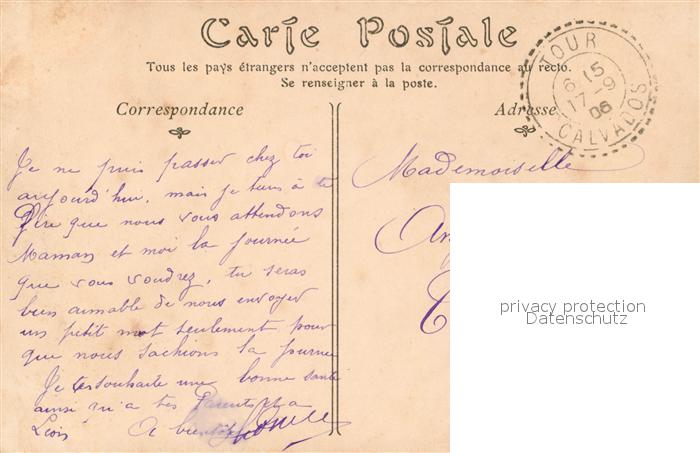 Carte Postale
Tous les pays étrangers n'acceptent pas la correspondance au recto.
Se renseigner à la poste.
Correspondance
Adresse
TOUR
6 15
17-9
06
CALVADOS
Je ne puis passer chez toi
aujourd'hui, mais je tiens à te
Dire que nous vous attendons
Maman et moi la journée
que vous voudrez, tu seras
bien aimable de nous envoyer
un petit mot seulement pour
que nous sachions la journée
Je te souhaite une bonne santé
ainsi qu'a tes Parents et a
A bientôt
Mademoiselle
privacy protection
Datenschutz